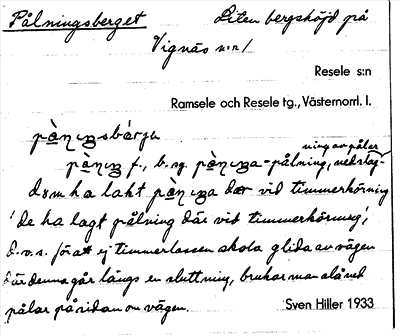 Pålningsberget Liten bergshöjd på
Vignäs n:r 1
Resele s:n
Ramsele och Resele tg., Västernorrl. l.
ning av pålar
f., b. sg. -pålning, nedslag-
dɷm ha lakt där vid timmerkörning
'de ha lagt pålning där vid timmerkörning',
d.v.s. för att ej timmerlassen skola glida av vägen
där denna går längs en sluttning, brukar man slå ned
pålar på sidan om vägen.
Sven Hiller 1933